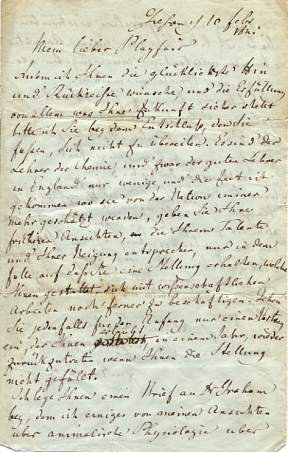 Giessen 10 Febr
1841.
Mein lieber Playfair
Indem ich Ihnen die glücklichste Hin
und Rückreise wünsche und die Erfüllung
von allem was Ihre Zukunft sicher stellt
bitte ich Sie bey dem Entschluß, den Sie
fassen, sich nicht zu übereilen. Es sind der
Lehrer der Chemie, und zwar der guten Lehrer
in England nur wenige und die Zeit ist
gekommen wo sie von der Nation immer
mehr geschätzt werden, geben Sie Ihre
früheren Ansichten, die Ihrem Talente
und Ihrer Neigung entsprechen, nur in dem
Falle auf daß Sie eine Stellung erhalten, welche
Ihnen gestattet sich mit wissenschaftlichen
Arbeiten noch ferner zu beschäftigen. Gehen
Sie jedenfalls für den Anfang nur einen Vertrag
ein, der Ihnen erlaubt in einem Jahr, wieder
zurückzutreten wenn Ihnen die Stellung
nicht gefällt.
Ich lege Ihnen einen Brief an Dr Graham
bey, dem ich einiges von meinen Ansichten
über animalische Physiologie über